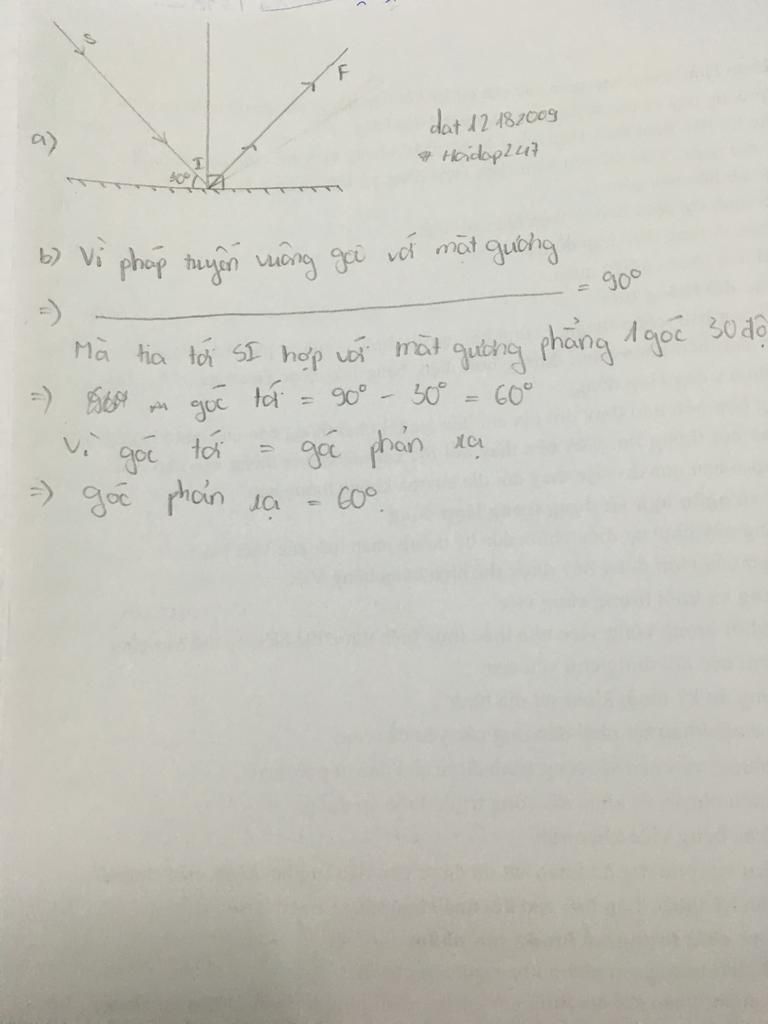 S
F
a)
I
30°
dat12182009
* Hoidap247
b) Vì pháp tuyến vuông góc với mặt gương
=) = 90°
Mà tia tới SI hợp với mặt gương phẳng 1 góc 30 độ
=) góc tới = 90° - 30° = 60°
Vì góc tới = góc phản xạ
=) góc phản xạ = 60°.